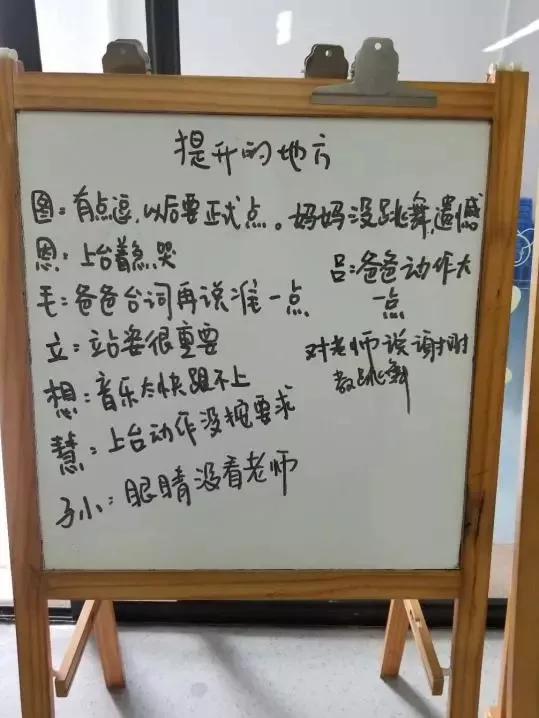 提升的地方
图：有点逗，以后要正式点。妈妈没跳舞，遗憾
恩：上台着急哭
毛：爸爸台词再说准一点
立：立站姿很重要
想：音乐太快跟不上
慧：上台动作没按要求
孙：眼睛没看老师
吕：爸爸动作大
一点
对老师说谢谢
教跳舞